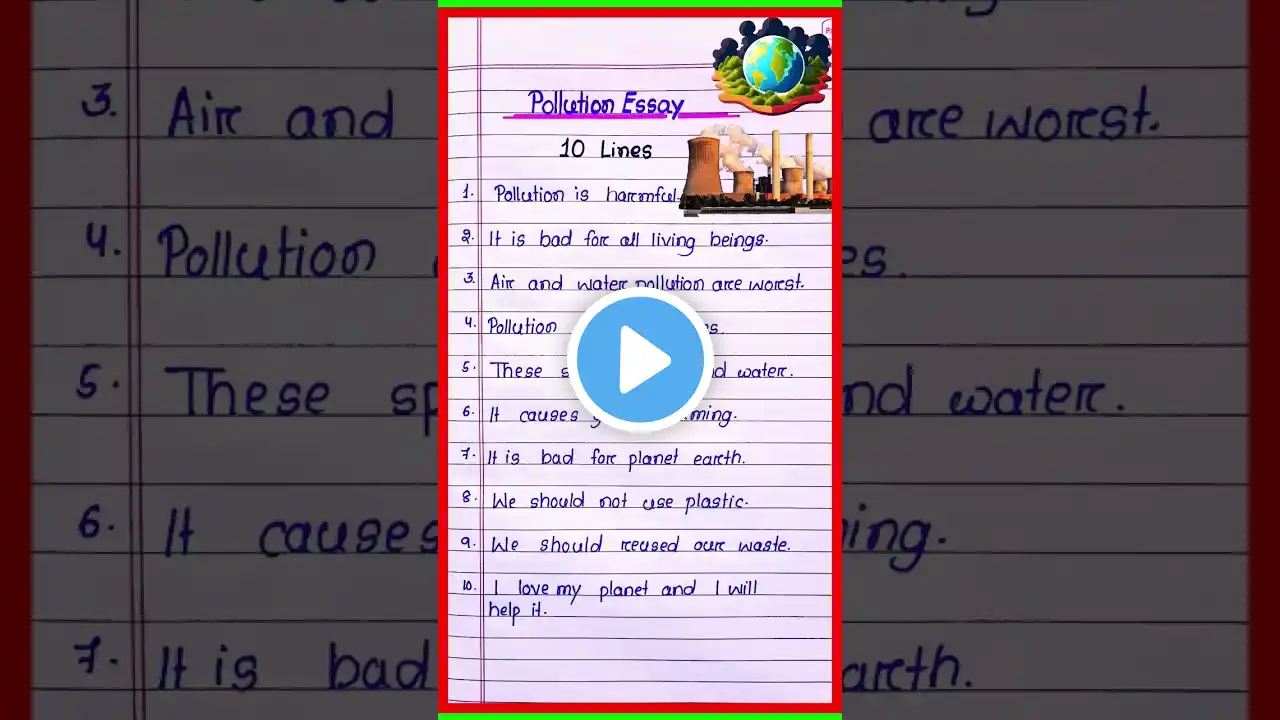 3. Air and
4. Pollution
5. These
6. It causes
7. It is bad
Pollution Essay
10 Lines
1. Pollution is harmful.
2. It is bad for all living beings.
3. Air and water pollution are worst.
4. Pollution
5. These water.
6. It causes
7. It is bad for planet earth.
8. We should not use plastic.
9. We should reused our waste.
10. I love my planet and I will
help it.
are worst.
water.
earth.